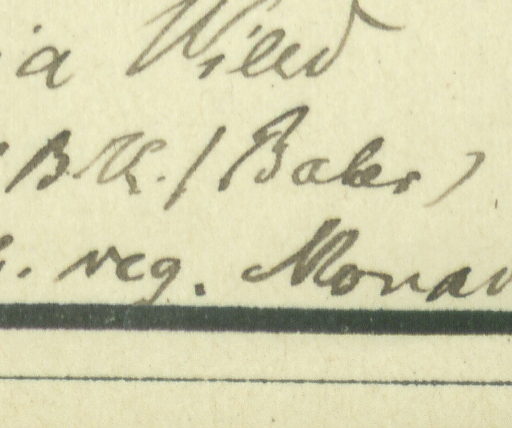 ia Willd
B. K. (Baker)
. reg. Monav